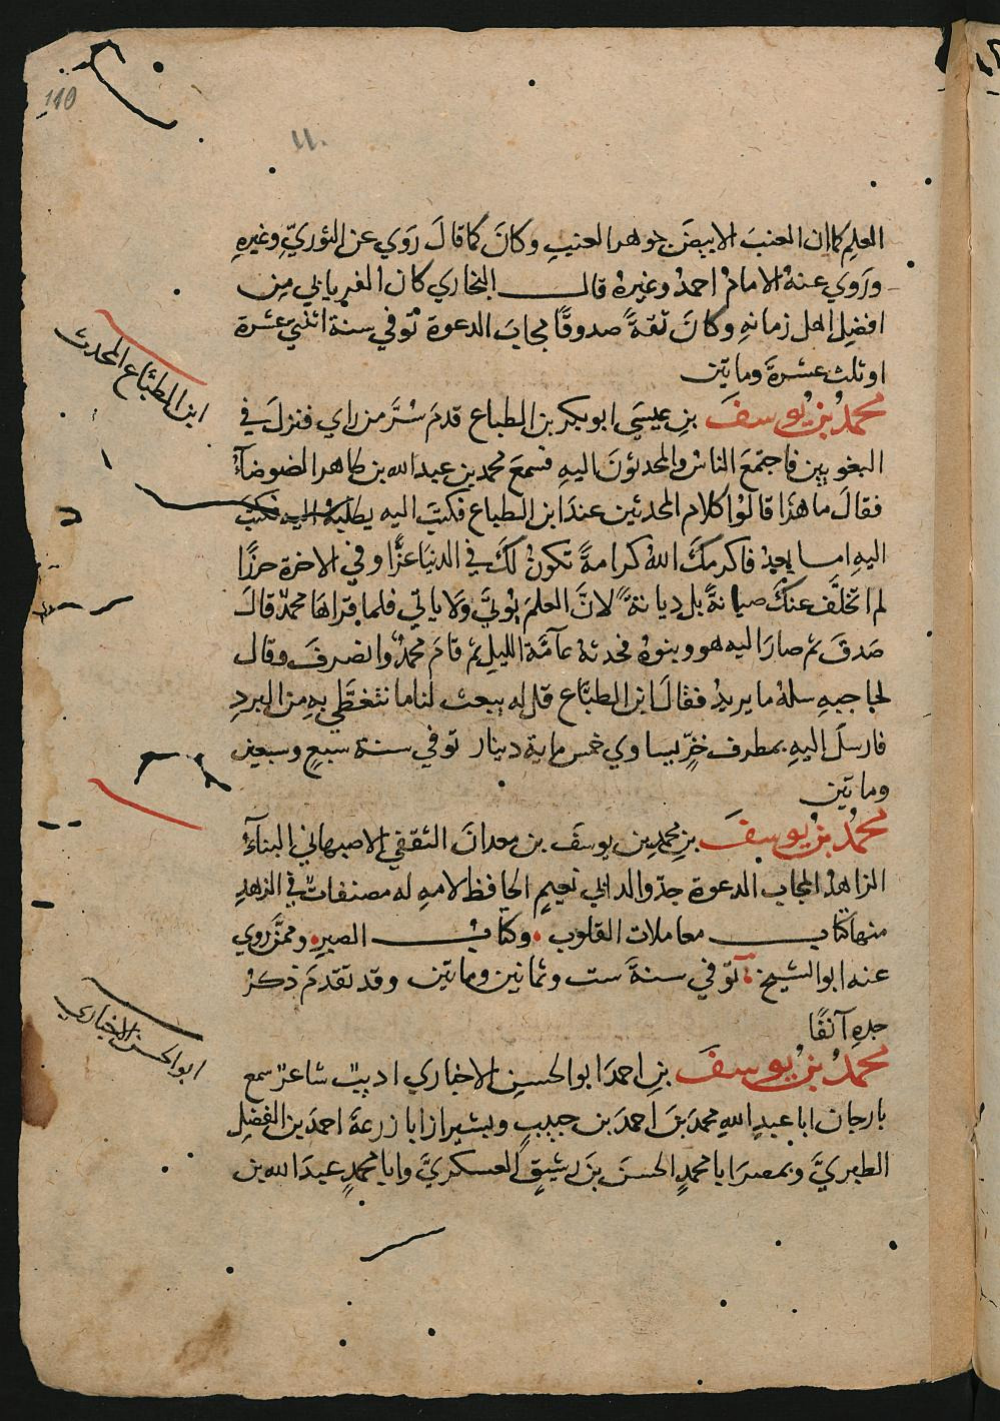 110
١١٠
العلم كما ان العنب الابيض جوهر العنب وكانَ كما قالَ رَوَي عن الثوريّ وغيرهِ
ورَوَي عنهُ الامامُ احمدُ وغيرهُ قال البخاري كان الفريابي مِن
افضل اهل زمانهِ وكانَ ثقةً صدوقًا مجابَ الدعوة توفي سنة اثنتي عشرة
او ثلث عشرةَ وماتين
ابن الطبّاع المحدث
محمدُ بنُ يُوسفَ بنِ عيسَي ابو بكر بن الطباع قدمَ سُرَّ من راي فنزلَ في
البغويين فاجتمعَ الناسُ والمحدثونَ اليهِ فسمعَ محمد بن عبد الله بن طاهر الضوضآءَ
فقالَ ما هذَا قالوُا كلام المحدثين عندَ ابن الطباع فكتبَ اليه يطلبهُ اليه فكتبَ
اليهِ اما بعدُ فاكرمكَ اللهُ كرامةً تكونُ لكَ في الدنيا عزًّا وفي الاخرة حرزًا
لم اتخلَّف عنكَ صيانةً بل ديانةً لانَّ العلمَ يُوتيَ ولا ياتي فلما قراهَا محمدٌ قالَ
صَدقَ ثم صارَ اليه هو وبنوهُ فحدثهُ عآمَّة الليل ثم قامَ محمدٌ وانصرفَ وقال
لحاجبهِ سلهُ ما يريدُ فقالَ ابن الطبَّاع قل له يبعث لنا ما نتغطَّي بهِ من البردِ
فارسلَ اليهِ بمطرف خزّ يساوي خمس ماية دينار توفي سنة سبعٍ وسبعين
وماتين
محمدُ بنُ يوسفَ بنِ محمدِ بن يوسفَ بن معدانَ الثقفي الاصبهاني البنآءُ
الزاهدُ المجاب الدعوة جدّ والد ابي نعيمٍ الحافظ لامهِ له مصنفاتٌ في الزهدِ
منها كتاب معاملات القلوب وكتاب الصبر وممَّن روي
عنه ابو الشيخ توفي سنةَ ست وثمانين وماتين وقد تقدمَ ذكرُ
جدهِ آنفًا
ابو الحسن الاخباري
محمدُ بنُ يُوسفَ بنِ احمدَ ابو الحسنِ الاخباري اديبٌ شاعرٌ سمع
بارجان ابا عبدِ اللهِ محمدَ بنَ احمدَ بن حبيبٍ وبشيراز ابا زرعةَ احمدَ بن الفضلِ
الطبريَّ وبمصرَ ابا محمدٍ الحسنَ بنَ رشيقٍ العسكريَّ وابا محمدٍ عبدَ الله بن